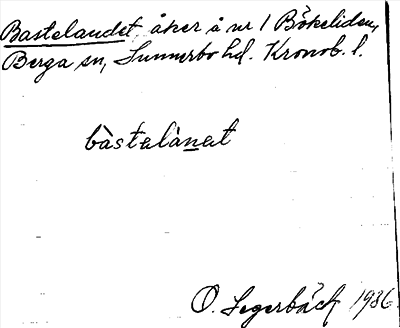 Bastelandet, åker å nr 1 Bökeliden,
Berga sn, Sunnerbo hd. Kronob. l.
bàstelànet
O. Segerbäck 1936